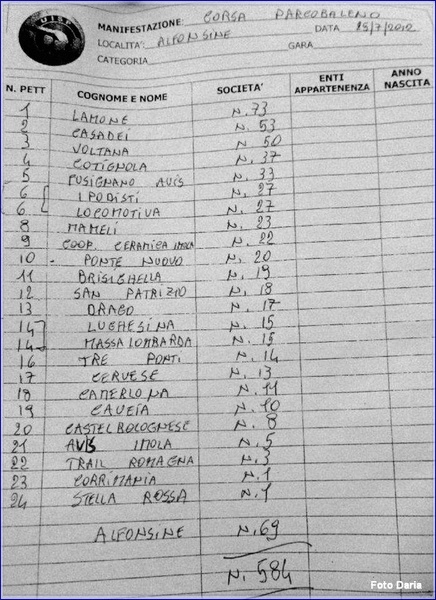 UISP
MANIFESTAZIONE: CORSA PARCOBALENO
LOCALITA': ALFONSINE DATA 25/7/2012
CATEGORIA GARA
N. PETT COGNOME E NOME SOCIETA' ENTI APPARTENENZA ANNO NASCITA
1 LAMONE N. 73
2 CASADEI N. 53
3 VOLTANA N 50
4 COTIGNOLA N. 37
5 FUSIGNANO AVIS N. 33
6 I PODISTI N. 27
6 LOCOMOTIVA N. 27
8 MAMELI N. 23
9 COOP. CERAMICA IMOLA N. 22
10 - PONTE NUOVO N. 20
11 BRISIGHELLA N. 19
12 SAN PATRIZIO N. 18
13 DRAGO N. 17
14 LUGHESINA N. 15
14 MASSALOMBARDA N. 15
16 TRE PONTI N. 14
17 CERVESE N. 13
18 CAMERLONA N. 11
19 CAVEJA N. 10
20 CASTELBOLOGNESE N. 8
21 AVIS IMOLA N. 5
22 TRAIL ROMAGNA N. 3
23 CORRIMANIA N. 1
24 STELLA ROSSA N. 1
ALFONSINE N. 69
N. 584
Foto Daria